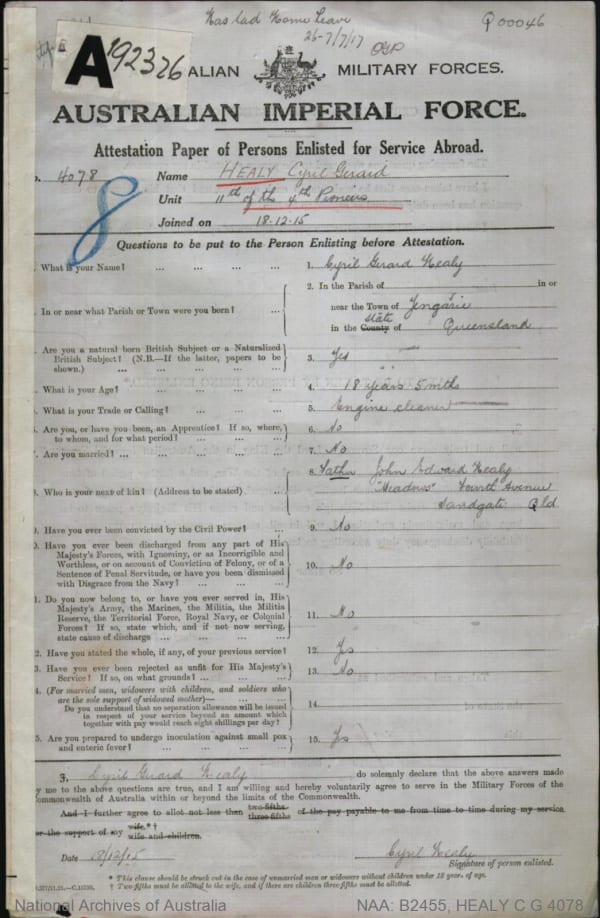 Has had Home Leave
26-7/7/17
P00046
A 192326
ALIAN MILITARY FORCES.
AUSTRALIAN IMPERIAL FORCE.
Attestation Paper of Persons Enlisted for Service Abroad.
o. 4078 Name HEALY Cyril Girard
8
Unit 11th of the 4th Pioneers
Joined on 18.12.15
Questions to be put to the Person Enlisting before Attestation.
. What is your Name? ... ... ... ... 1. Cyril Girard Healy
. In or near what Parish or Town were you born? ... 2. In the Parish of in or
near the Town of Yengarie
in the County of State Queensland
. Are you a natural born British Subject or a Naturalized
British Subject? (N.B.—If the latter, papers to be
shown.) ... ... ... ... ... 3. Yes
. What is your Age? ... ... ... ... 4. 18 years 5 mths
. What is your Trade or Calling? ... ... ... 5. Engine cleaner
. Are you, or have you been, an Apprentice? If so, where,
to whom, and for what period? ... ... ... 6. No
. Are you married? ... ... ... ... ... 7. No
. Who is your next of kin? (Address to be stated) ... 8. Father John Edward Healy
Fourth Avenue
Sandgate Qld
9. Have you ever been convicted by the Civil Power? ... 9. No
0. Have you ever been discharged from any part of His
Majesty's Forces, with Ignominy, or as Incorrigible and
Worthless, or on account of Conviction of Felony, or of a
Sentence of Penal Servitude, or have you been dismissed
with Disgrace from the Navy? ... ... ... 10. No
1. Do you now belong to, or have you ever served in, His
Majesty's Army, the Marines, the Militia, the Militia
Reserve, the Territorial Force, Royal Navy, or Colonial
Forces? If so, state which, and if not now serving,
state cause of discharge ... ... ... ... 11. No
2. Have you stated the whole, if any, of your previous service? 12. Yes
3. Have you ever been rejected as unfit for His Majesty's
Service? If so, on what grounds? ... ... ... 13. No
4. (For married men, widowers with children, and soldiers who
are the sole support of widowed mother)—
Do you understand that no separation allowance will be issued
in respect of your service beyond an amount which
together with pay would reach eight shillings per day? 14.
5. Are you prepared to undergo inoculation against small pox
and enteric fever? ... ... ... ... 15. Yes
3. Cyril Girard Healy do solemnly declare that the above answers made
y me to the above questions are true, and I am willing and hereby voluntarily agree to serve in the Military Forces of the
ommonwealth of Australia within or beyond the limits of the Commonwealth.
And I further agree to allot not less than two-fifths three-fifths of the pay payable to me from time to time during my service
or the support of my wife.*†
wife and children.
Date 18/12/15 Cyril Healy
Signature of person enlisted.
* This clause should be struck out in the case of unmarried men or widowers without children under 18 years of age.
† Two-fifths must be allotted to the wife, and if there are children three-fifths must be allotted.
National Archives of Australia NAA: B2455, HEALY C G 4078